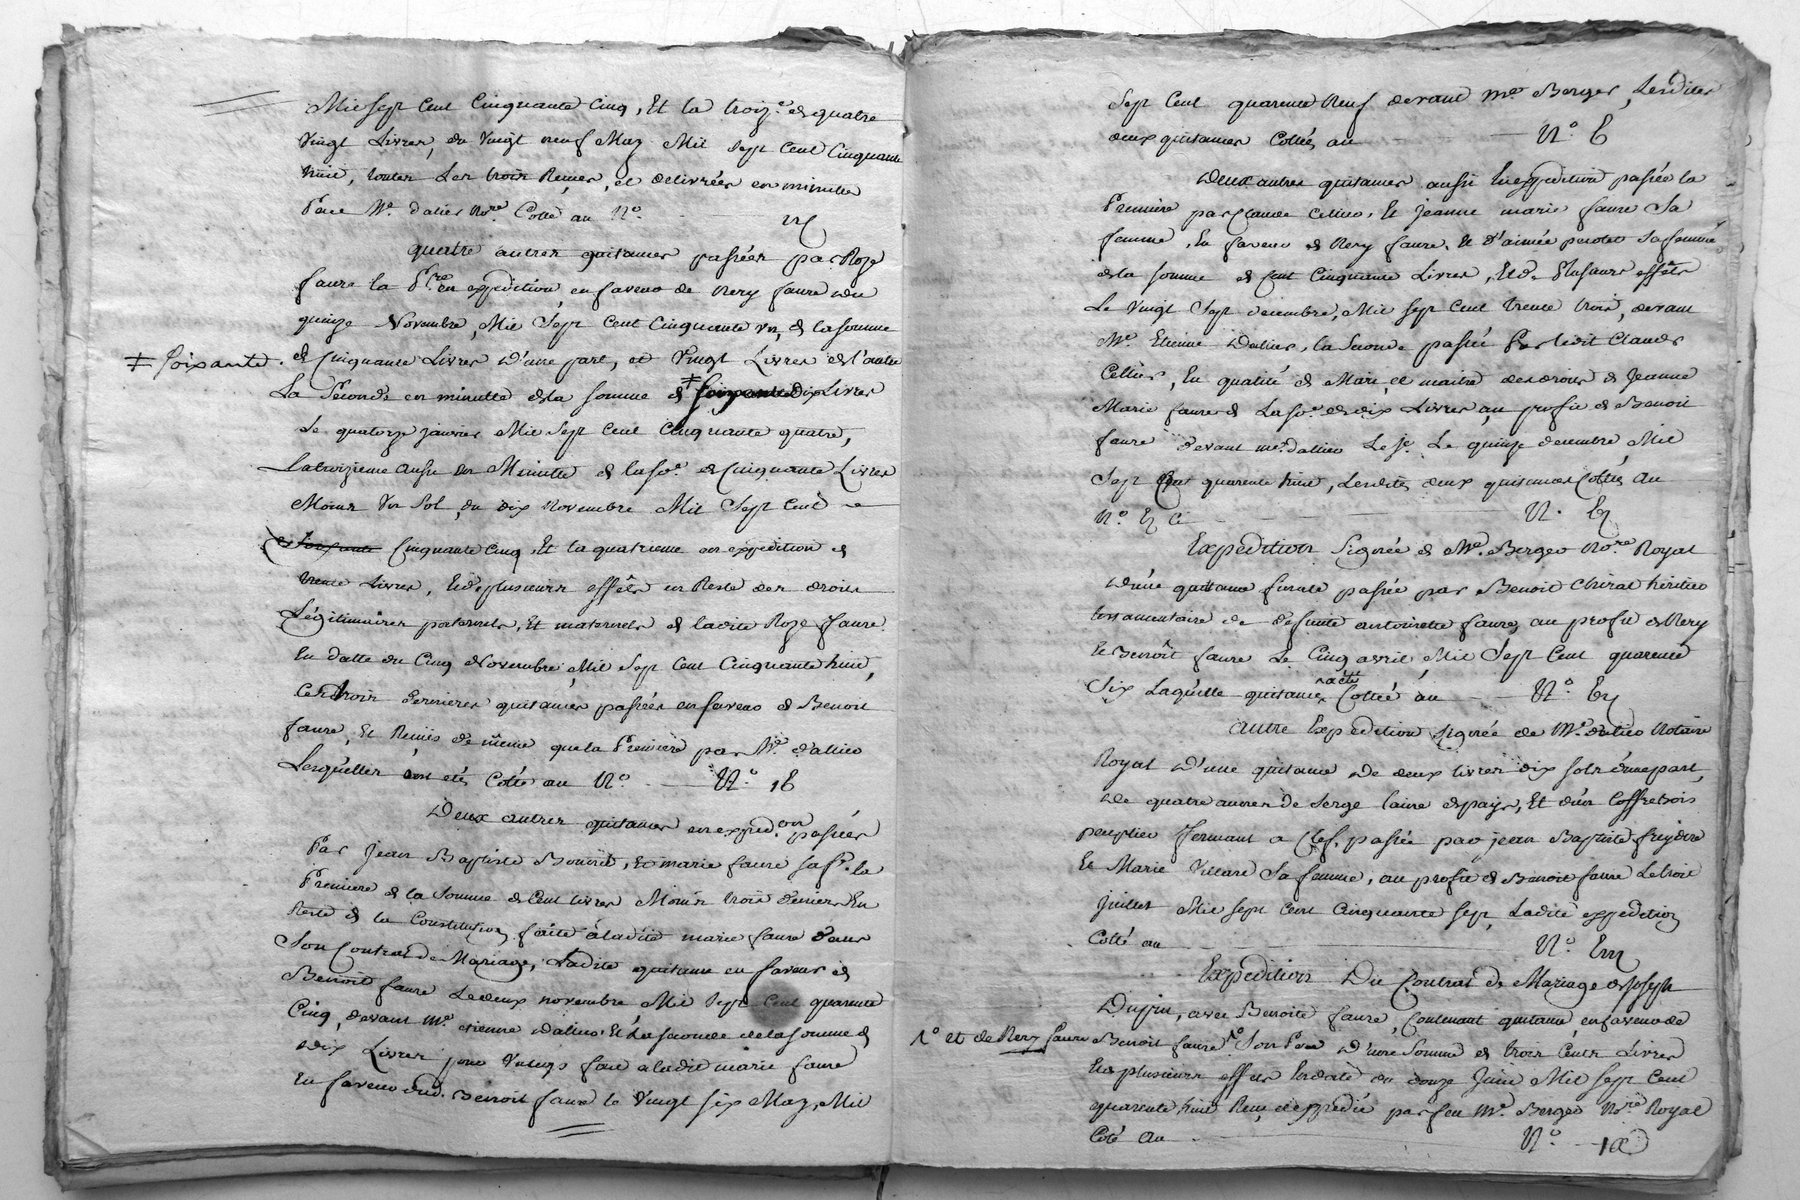 Mil sept Cent Cinquante Cinq, Et la troiz.e de quatre
Vingt Livres, du Vingt neuf May Mil sept Cent Cinquante
huit, toutes Les trois Reçues, et delivrées en minutte
Par M.e dalier No.re Cotté au N.o
quatre autres quitances passées par Roze
faure la P.re en expédition, en faveur de Rery faure du
quinze Novembre, Mil Sept Cent Cinquante un, de la somme
de Cinquante Livres d'une part, et Vingt Livres de l'autre
‡ soixante.
La seconde en minutte de la somme de ‡ dix Livres
Le quatorze janvier Mil Sept Cent Cinquante quatre,
La troizieme aussi en Minutte de la so.e de Cinquante Livres
Moins Un Sol, du dix Novembre Mil Sept Cent
Cinquante Cinq, Et la quatrieme en expédition de
trente Livres, Et de plusieurs effêts en Reste des droits
Légitimaires paternels, Et maternels de ladite Roze faure
En datte du Cinq Novembre, Mil Sept Cent Cinquante huit,
Ces trois dernieres quitances passées en faveur de Benoit
faure, Et Remis de même que la Premiere par M.e dallier
Lesquelles ont étés Cotté au N.o N.o
Deux autres quitances en exped.on passées
Par Jean Baptiste, Et marie faure sa f.e la
Premiere de la Somme de Cent livres Moins trois deniers En
Reste de la Constitution faite à ladite marie faure dans
Son Contrat de Mariage, Ladite quitance en faveur de
Benoit faure Le deux novembre Mil Sept Cent quarente
Cinq, devant M.e etienne dalier, Et La seconde de la somme de
dix Livres pour faite a ladite marie faure
En faveur dud. Benoit faure le Vingt six May, Mil
Sept Cent quarente Neuf devant M.e Berger, Lesdites
deux quitances Cottés au N.o E
Deux autres quitances aussi En expedition passée la
Premiere par Claude Cellier, Et Jeanne marie faure Sa
femme, En faveur de Rery faure, Et d'aimée perotet Sa femme
de la somme de Cent Cinquante Livres, Et de Plusieurs effêts
Le Vingt Sept decembre, Mil sept Cent trente trois, devant
M.e Etienne Dalier, la Seconde passée Par ledit Claude
Cellier, En qualité de Mari, et maitre des droits de Jeanne
Marie faure de La so.e de dix Livres, au profit de Benoit
faure devant me. dallier Le quinze decembre, Mil
Sept Cent quarente huit, Lesdites deux quitances Cottés Au
N.o
Expedition Signée de M.e Berger No.re Royal
D'une quittance finale passée par Benoit Chirat héritier
testamentaire de defunte antoinette faure, au profit de Rery
Et Benoît faure Le Cinq avril Mil Sept Cent quarente
Six Laquelle quitance Cottée au N.o
autre Expedition signée de M.e dalier Notaire
Royal D'une quitance de deux livres dix sols d'une part,
de quatre aunes de Serge laine de pays, Et d'un Coffre bois
peuplier fermant a Clef, passée par jean Baptiste
Et Marie Villard Sa femme, au profit de Benoit faure Le trois
juillet Mil sept Cent Cinquante Sept, Ladite expedition
Cotté au N.o
Expedition Du Contrat de Mariage de Joseph
Dupin, avec Benoite faure, Contenant quitance, en faveur de
1.o et de Rery faure
Benoit faure Son Pere D'une Somme de trois Cents Livres
Et plusieurs effets En date du douze Juin Mil sept Cent
quarente huit Reçu et expedié par feu M.e Berger No.re Royal
Coté au N.o